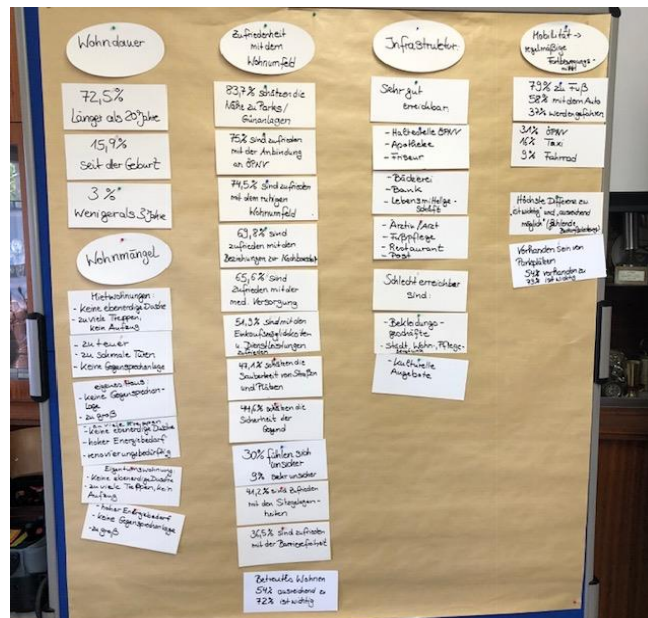 Wohndauer
72,5%
Länger als 20 Jahre
15,9%
seit der Geburt
3 %
Weniger als 3 Jahre
Wohnmängel
Mietwohnungen:
- keine ebenerdige Dusche
- zu viele Treppen,
kein Aufzug
- zu teuer
- zu schmale Türen
- keine Gegensprechanlage
eigenes Haus:
- keine Gegensprechan-
lage
- zu groß
- keine ebenerdige Dusche
- hoher Energiebedarf
- renovierungsbedürftig
Eigentumswohnung
- keine ebenerdige Dusche
- zu viele Treppen, kein
Aufzug
- hoher Energiebedarf
- keine Gegensprechanlage
- zu groß
Zufriedenheit
mit dem
Wohnumfeld
83,7% schätzen die
Nähe zu Parks/
Grünanlagen
75% sind zufrieden
mit der Anbindung
an ÖPNV
74,5% sind zufrieden
mit dem ruhigen
Wohnumfeld
69,8% sind
zufrieden mit den
Beziehungen zur Nachbarschaft
65,6% sind
zufrieden mit der
med. Versorgung
51,9% sind mit den
Einkaufsmöglichkeiten
u. Dienstleistungen
zufrieden
47,1% schätzen die
Sauberkeit von Straßen
und Plätzen
44,6% schätzen die
Sicherheit der
Gegend
30% fühlen sich
unsicher
9% sehr unsicher
41,2% sind zufrieden
mit den Sitzgelegen-
heiten
36,5% sind zufrieden
mit der Barrierefreiheit
Betreutes Wohnen
54% ausreichend zu
72% ist wichtig
Infrastruktur:
Sehr gut
erreichbar:
- Haltestelle ÖPNV
- Apotheke
- Friseur
- Bäckerei
- Bank
- Lebensmittelge-
schäft
- Ärztin/Arzt
- Fußpflege
- Restaurant
- Post
Schlecht erreichbar
sind:
- Bekleidungs-
geschäfte
- Stadt, Wohn-, Pflege-
beratung
- kulturelle
Angebote
Mobilität →
regelmäßige
Fortbewegungs-
mittel
79% zu Fuß
58% mit dem Auto
37% werden gefahren
31% ÖPNV
16% Taxi
9% Fahrrad
Höchste Differenz zu
„ist wichtig" und „ausreichend
möglich"
Vorhanden Sein von
Parkplätzen
54% vorhanden zu
73% ist wichtig